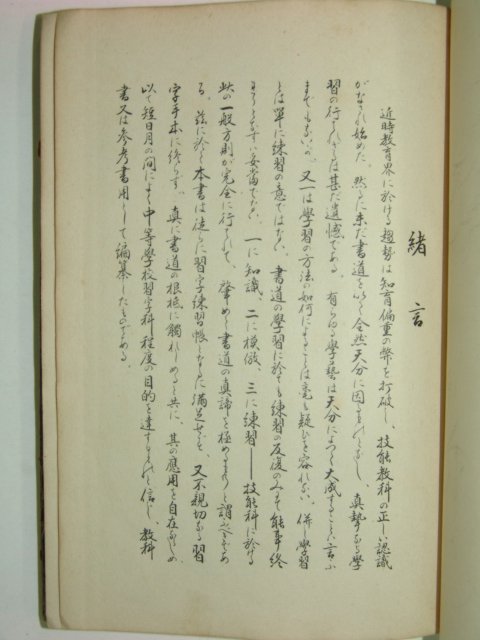 緒言
近時教育界に於ける趨勢は知育偏重の弊を打破し、技能教科の正しい認識
がなされ始めた。然るに未だ書道を以て全然天分に因るものとなし、真勢なる學
習の行はれざるは甚だ遺憾である。有らゆる學藝は天分によって大成することは言ふ
までもないが、又一は學習の方法の如何によることは毫も疑ひを容れない。併し學習
とは單に練習の意ではない。書道の學習に於ても練習の反復のみを能事終
れりとなすは妥當でない。一に知識、二に模倣、三に練習──技能科に於ける
此の一般方則が完全に行はれて、肇めて書道の真諦を極めるものと謂ふべきであ
る。茲に於て本書は徒らに習字練習帳となすに満足せず、又不親切なる習
字手本に終らず。真に書道の根柢に觸れしめると共に、其の應用を自在ならしめ
以て短日月の間によく中等學校習字科程度の目的を達するものと信じ、教科
書又は參考書用として編纂したものである。